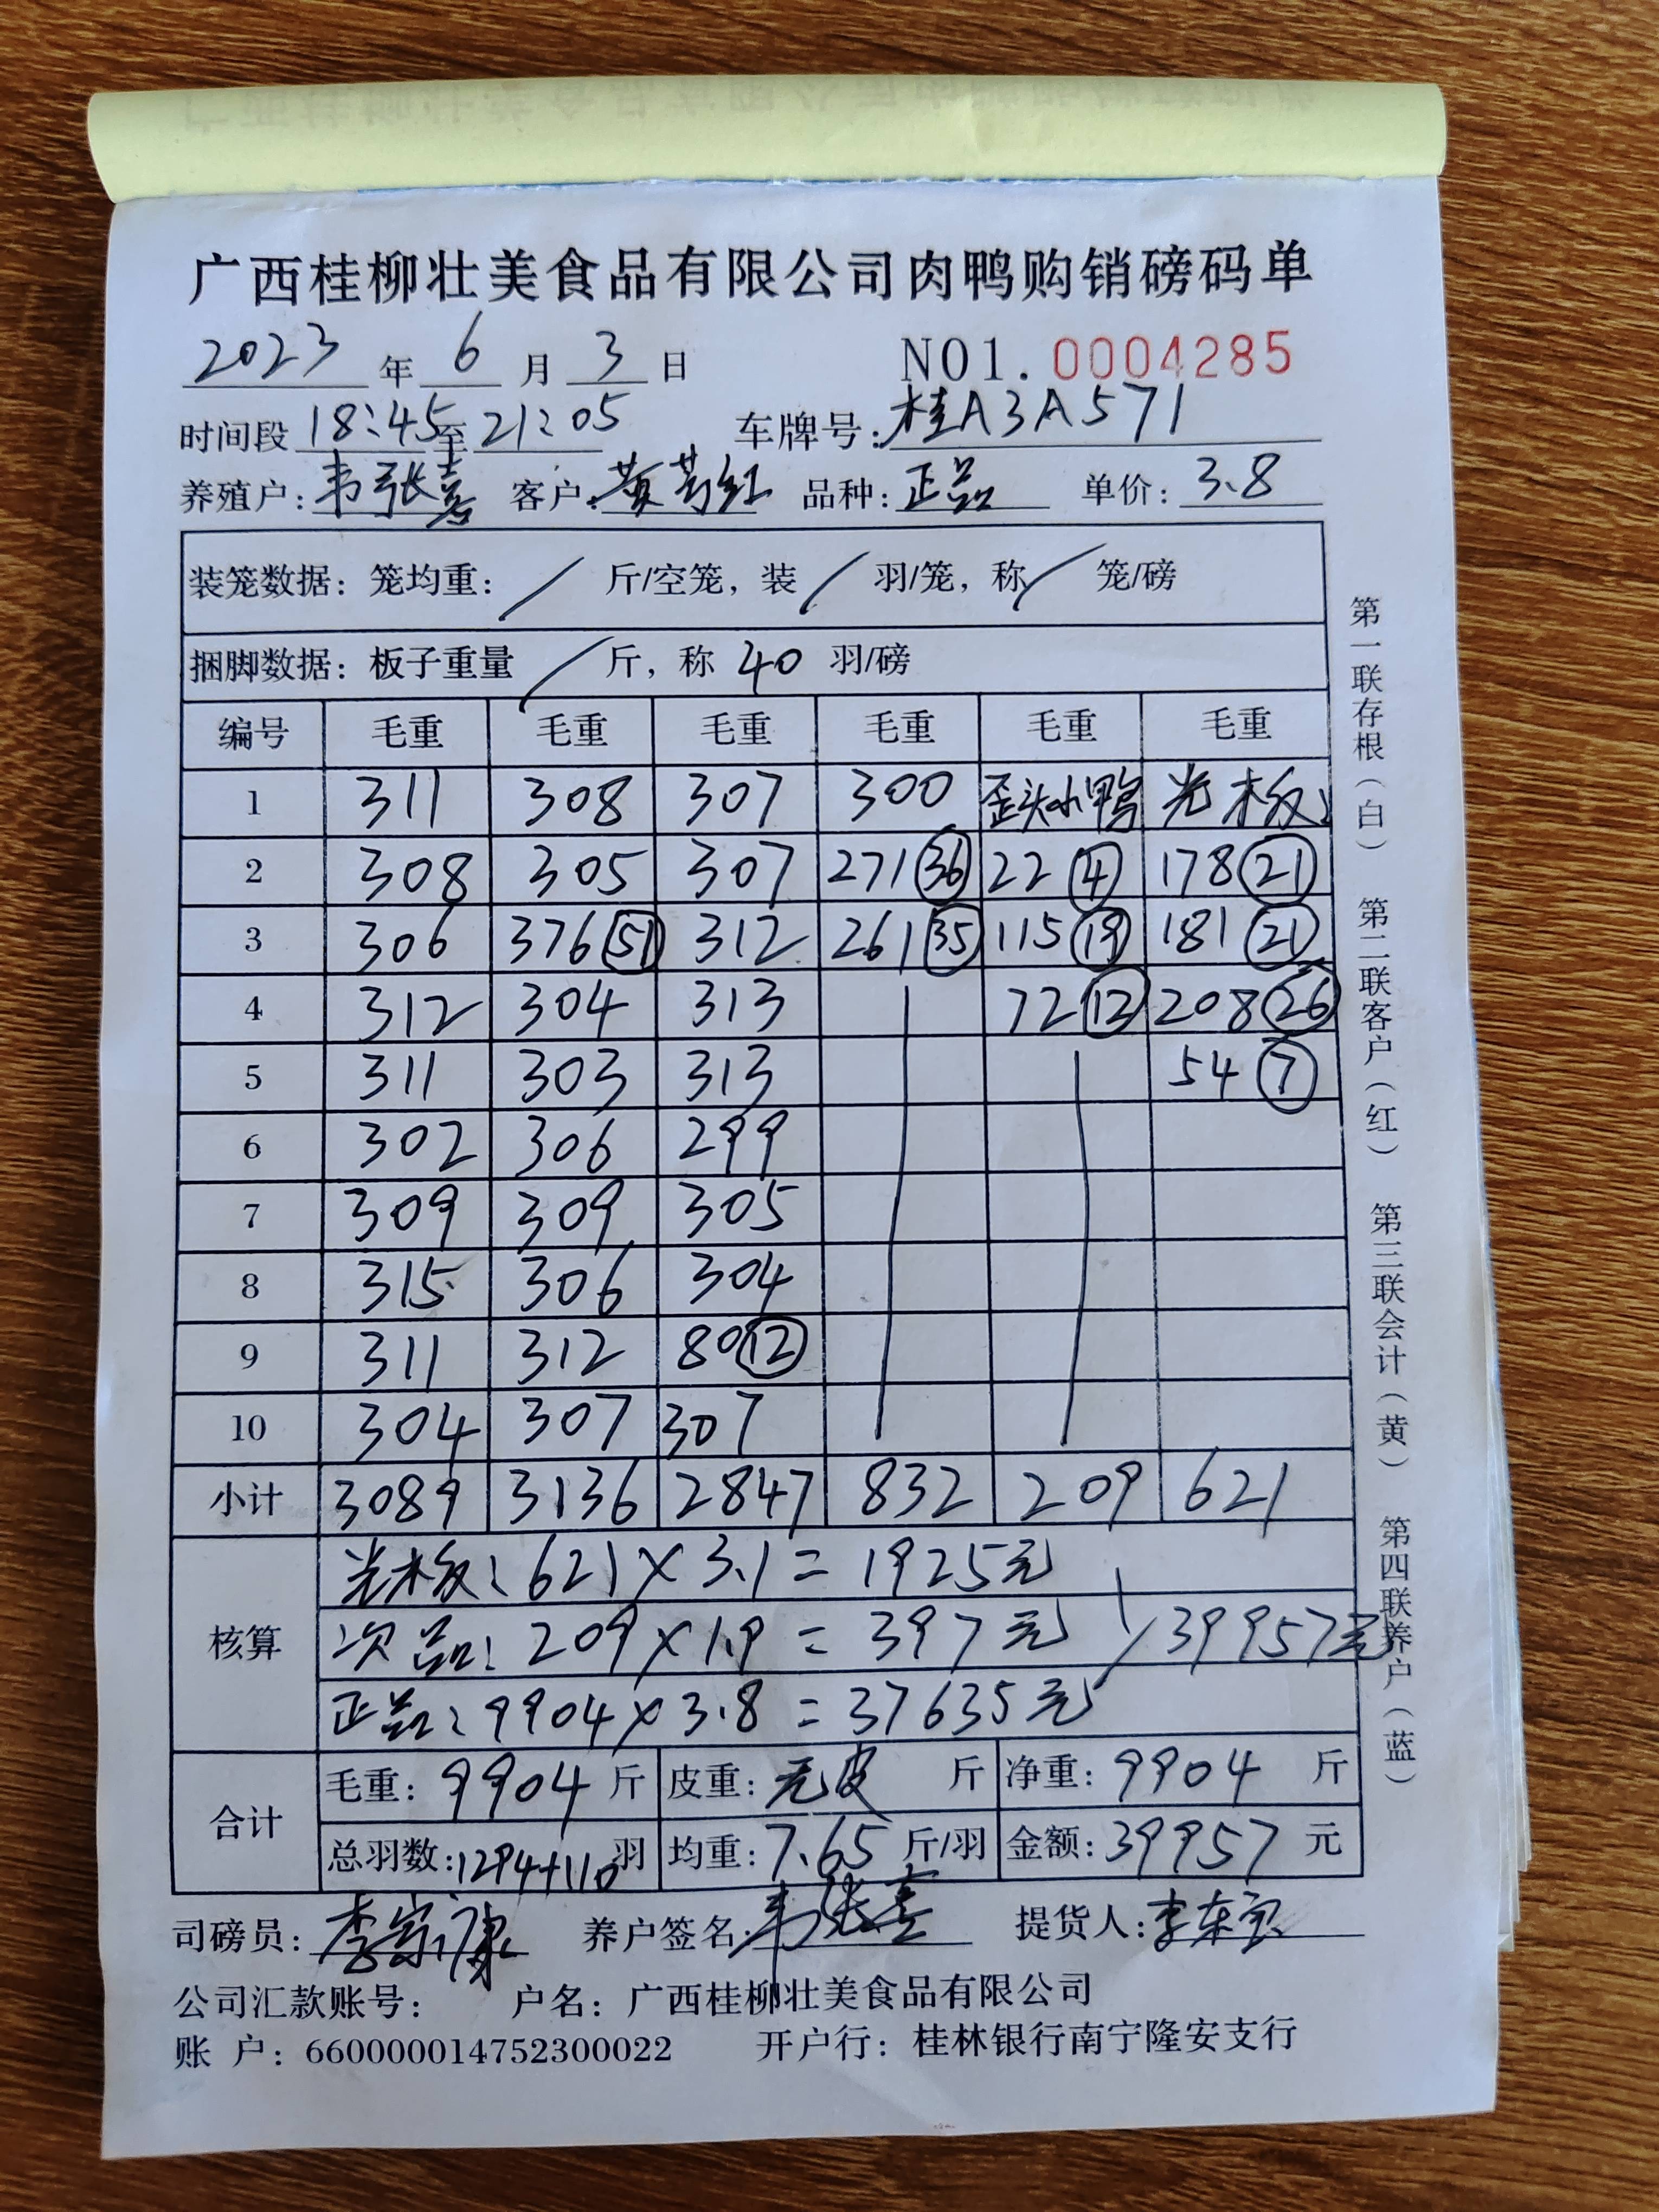 广西桂柳壮美食品有限公司肉鸭购销磅码单
2023 年 6 月 3 日 NO1. 0004285
时间段 18:45 至 21:05 车牌号: 桂A3A571
养殖户: 韦张喜 客户: 黄芳红 品种: 正品 单价: 3.8
装笼数据: 笼均重: / 斤/空笼, 装 / 羽/笼, 称 / 笼/磅
捆脚数据: 板子重量 / 斤, 称 40 羽/磅
编号 毛重 毛重 毛重 毛重 毛重 毛重
1 311 308 307 300 歪头小鸭 光板:
2 308 305 307 271 36 22 4 178 21
3 306 376 51 312 261 35 115 19 181 21
4 312 304 313 72 12 208 26
5 311 303 313 54 7
6 302 306 299
7 309 309 305
8 315 306 304
9 311 312 80 12
10 304 307 307
小计 3089 3136 2847 832 209 621
核算
光板: 621×3.1=1925元
次品: 209×1.9=397元 39957元
正品: 9904×3.8=37635元
合计
毛重: 9904 斤 皮重: 无皮 斤 净重: 9904 斤
总羽数: 1294+110 羽 均重: 7.65 斤/羽 金额: 39957 元
司磅员: 李宗康 养户签名: 韦张喜 提货人: 李东
公司汇款账号: 户名: 广西桂柳壮美食品有限公司
账 户: 660000014752300022 开户行: 桂林银行南宁隆安支行
第一联存根(白) 第二联客户(红) 第三联会计(黄) 第四联养户(蓝)